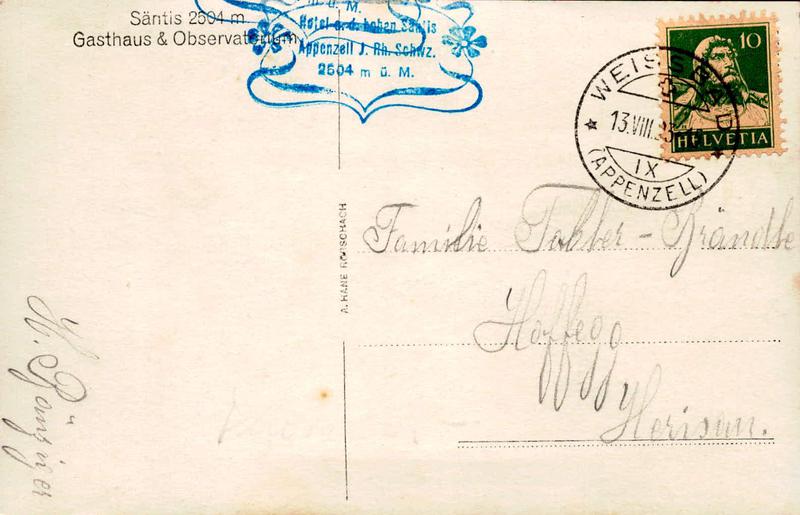 Säntis 2504 m
Gasthaus & Observatorium
m ü. M.
Hotel a. d. hohen Säntis
Appenzell J. Rh. Schwz.
2504 m ü. M.
10
HELVETIA
WEISSBAD
13.VIII.23
IX
(APPENZELL)
A. HANE RORSCHACH
Familie Tobler-
Hoffegg
Herisau.
H.